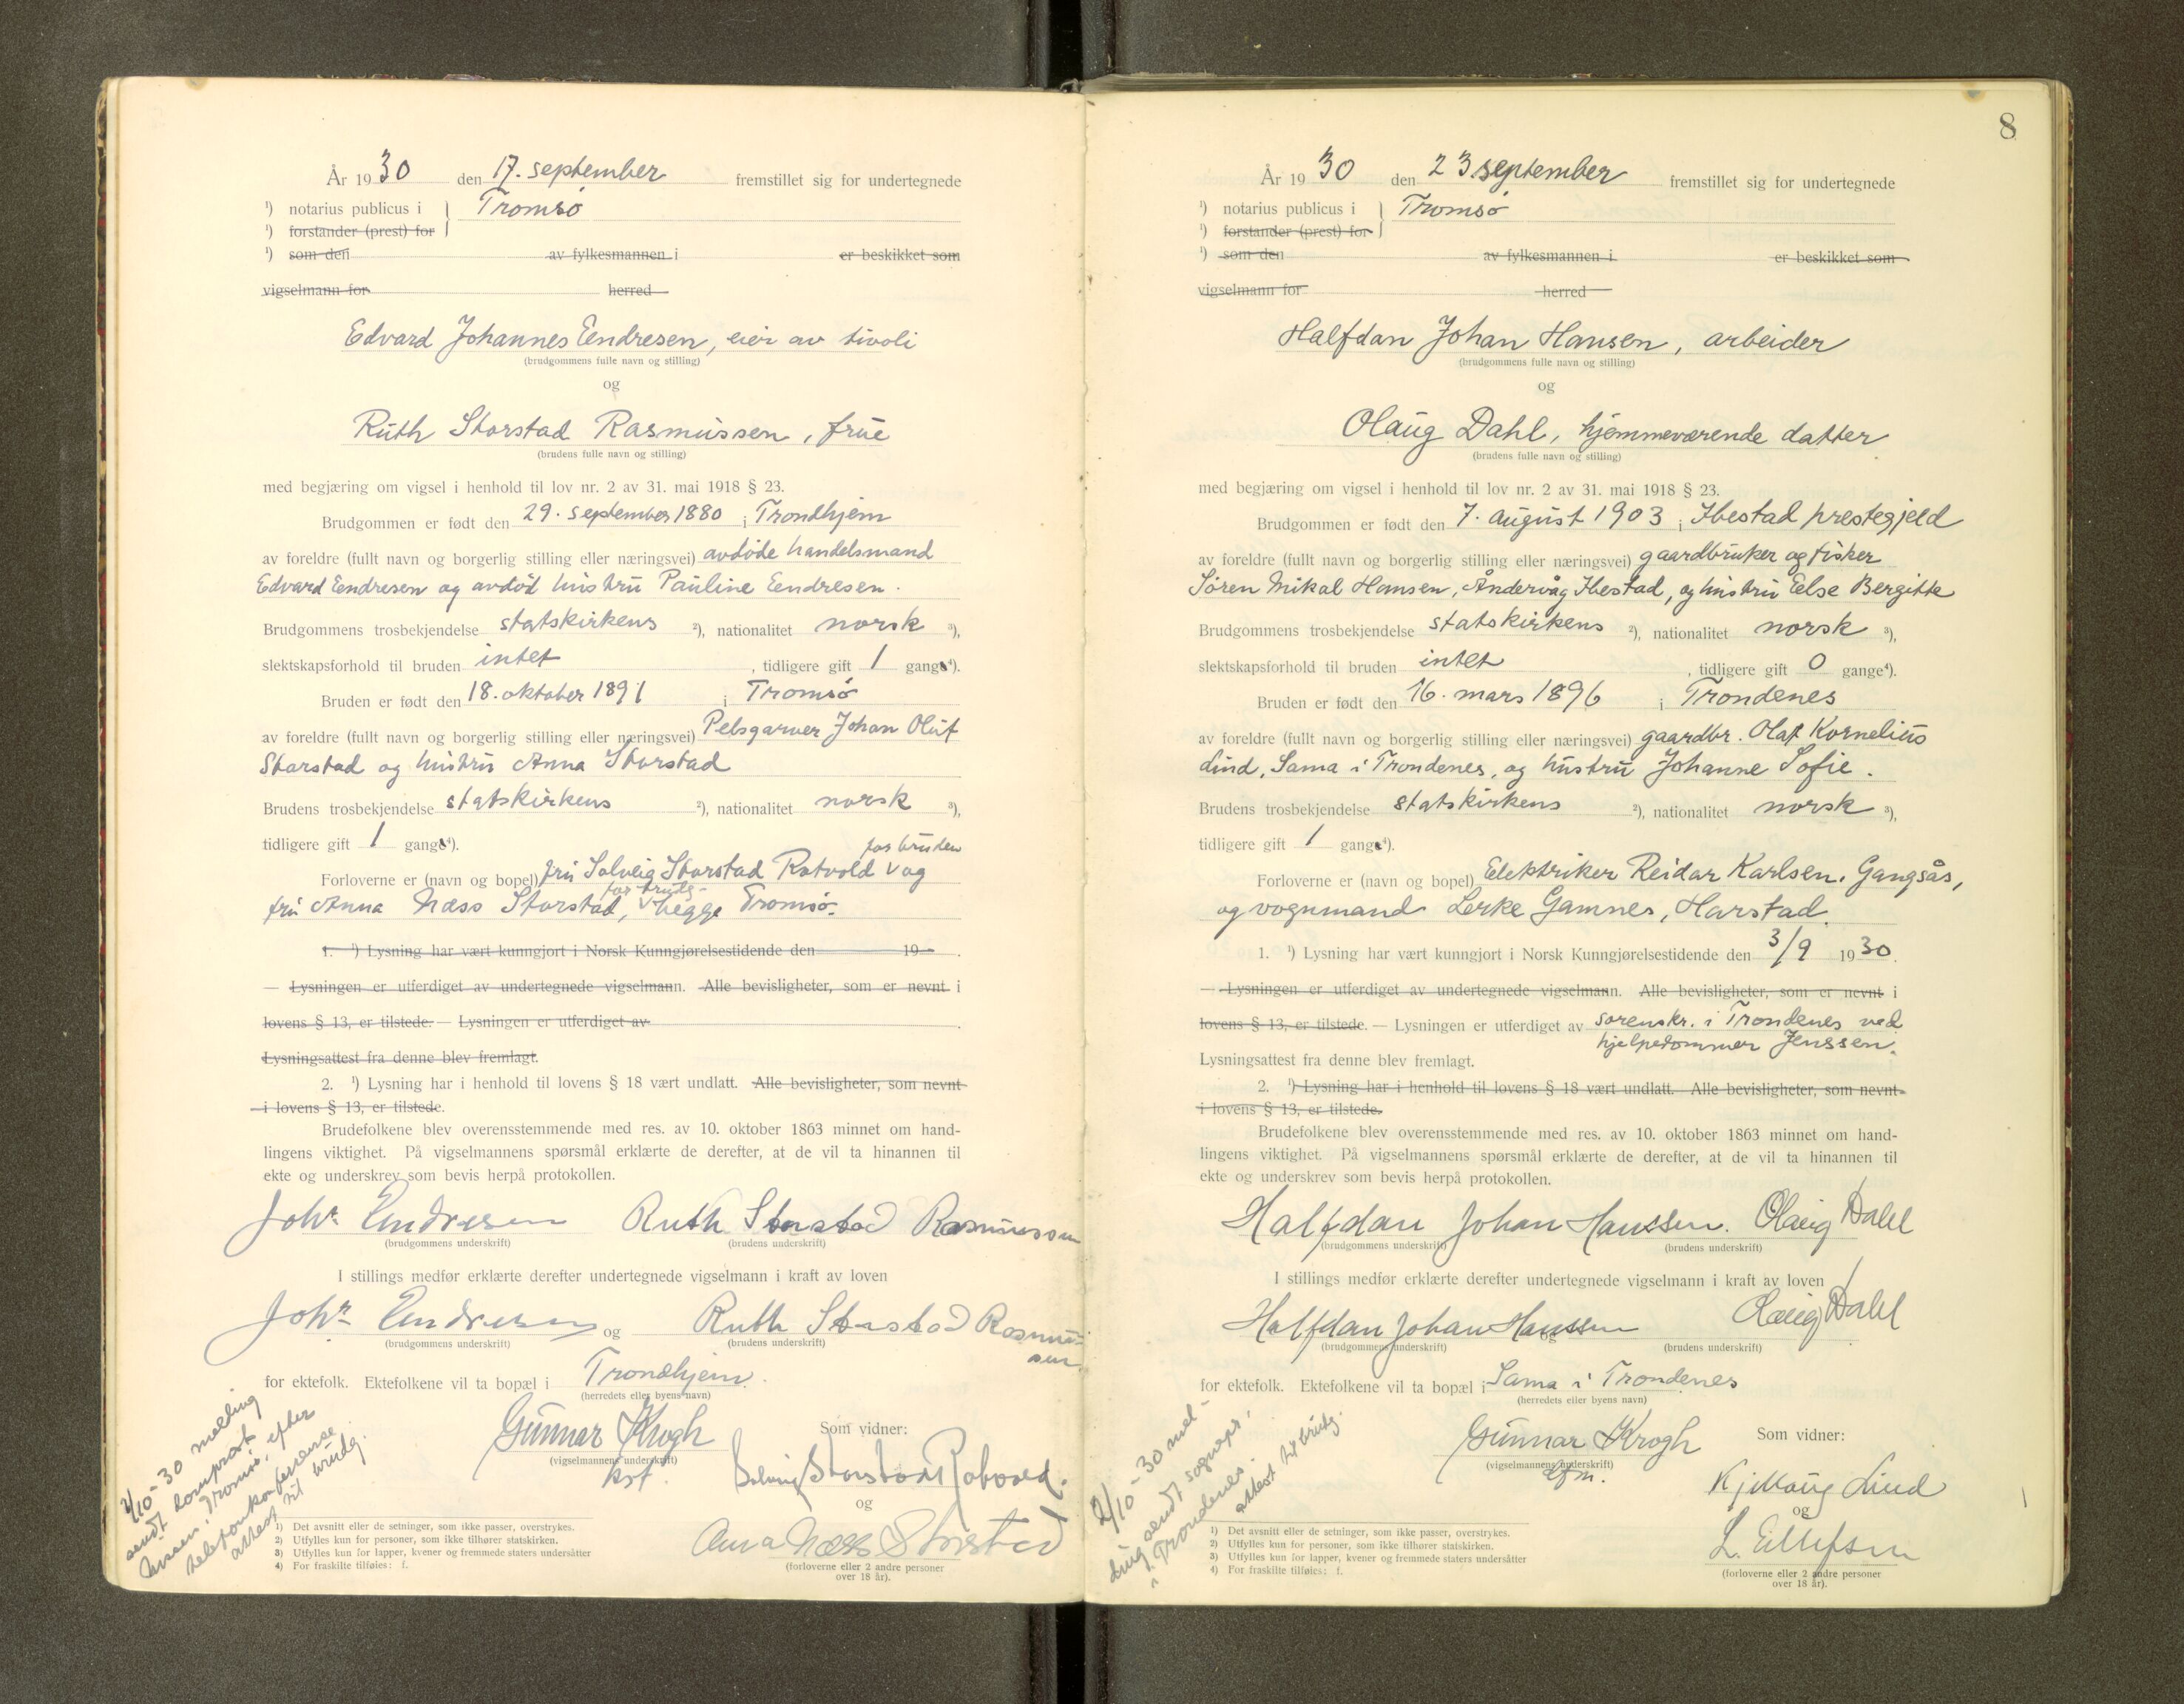 År 1930 den 17. september fremstillet sig for undertegnede
¹) notarius publicus i } Tromsø
¹) forstander (prest) for
¹) som den av fylkesmannen i er beskikket som
vigselmann for herred
Edvard Johannes Eendresen, eier av tivoli
(brudgommens fulle navn og stilling)
og
Ruth Storstad Rasmussen, frue
(brudens fulle navn og stilling)
med begjæring om vigsel i henhold til lov nr. 2 av 31. mai 1918 § 23.
Brudgommen er født den 29. september 1880 i Trondhjem
av foreldre (fullt navn og borgerlig stilling eller næringsvei) avdøde handelsmand
Edvard Eendresen og avdød hustru Pauline Eendresen.
Brudgommens trosbekjendelse statskirkens ²), nationalitet norsk ³),
slektskapsforhold til bruden intet , tidligere gift 1 gang⁴).
Bruden er født den 18. oktober 1891 i Tromsø
av foreldre (fullt navn og borgerlig stilling eller næringsvei) Pelsgarver Johan Oluf
Storstad og hustru Anna Storstad
Brudens trosbekjendelse statskirkens ²), nationalitet norsk ³),
tidligere gift 1 gang⁴). for bruden
Forloverne er (navn og bopel) fru Solveig Storstad Rotvold v og
for brudg-
fru Anna Næss Storstad, v begge Tromsø.
1. ¹) Lysning har vært kunngjort i Norsk Kunngjørelsestidende den 19 .
— Lysningen er utferdiget av undertegnede vigselmann. Alle bevisligheter, som er nevnt i
lovens § 13, er tilstede. — Lysningen er utferdiget av .
Lysningsattest fra denne blev fremlagt.
2. ¹) Lysning har i henhold til lovens § 18 vært undlatt. Alle bevisligheter, som nevnt
i lovens § 13, er tilstede.
Brudefolkene blev overensstemmende med res. av 10. oktober 1863 minnet om hand-
lingens viktighet. På vigselmannens spørsmål erklærte de derefter, at de vil ta hinannen til
ekte og underskrev som bevis herpå protokollen.
Johs Eendresen Ruth Storstad Rasmussen
(brudgommens underskrift) (brudens underskrift)
I stillings medfør erklærte derefter undertegnede vigselmann i kraft av loven
Johs Eendresen og Ruth Storstad Rasmus-
sen
(brudgommens underskrift) (brudens underskrift)
for ektefolk. Ektefolkene vil ta bopæl i Trondhjem.
(herredets eller byens navn)
Gunnar Krogh Som vidner:
(vigselmannens underskrift)
kst. Solveig Storstad Rotvold.
og
Anna Næss Storstad
(forloverne eller 2 andre personer
over 18 år).
2/10-30 melding
sendt domprost
Tromsø, efter
telefonkonferense
attest til brudg.
1) Det avsnitt eller de setninger, som ikke passer, overstrykes.
2) Utfylles kun for personer, som ikke tilhører statskirken.
3) Utfylles kun for lapper, kvener og fremmede staters undersåtter
4) For fraskilte tilføies: f.
8
År 1930 den 23 september fremstillet sig for undertegnede
¹) notarius publicus i } Tromsø
¹) forstander (prest) for
¹) som den av fylkesmannen i er beskikket som
vigselmann for herred
Halfdan Johan Hansen, arbeider
(brudgommens fulle navn og stilling)
og
Olaug Dahl, hjemmeværende datter
(brudens fulle navn og stilling)
med begjæring om vigsel i henhold til lov nr. 2 av 31. mai 1918 § 23.
Brudgommen er født den 7. august 1903 i Ibestad prestegjeld
av foreldre (fullt navn og borgerlig stilling eller næringsvei) gaardbruker og fisker
Søren Mikal Hansen, Åndervåg Ibestad, og hustru Else Bergitte
Brudgommens trosbekjendelse statskirkens ²), nationalitet norsk ³),
slektskapsforhold til bruden intet , tidligere gift 0 gange⁴).
Bruden er født den 16. mars 1896 i Trondenes
av foreldre (fullt navn og borgerlig stilling eller næringsvei) gaardbr. Olaf Kornelius
Lind, Sama i Trondenes, og hustru Johanne Sofie.
Brudens trosbekjendelse statskirkens ²), nationalitet norsk ³),
tidligere gift 1 gang⁴).
Forloverne er (navn og bopel) Elektriker Reidar Karlsen, Gangsås,
og vognmand Lerke Gamnes, Harstad.
1. ¹) Lysning har vært kunngjort i Norsk Kunngjørelsestidende den 3/9 1930.
— Lysningen er utferdiget av undertegnede vigselmann. Alle bevisligheter, som er nevnt i
lovens § 13, er tilstede. — Lysningen er utferdiget av sorenskr. i Trondenes ved
hjelpedommer Jenssen.
Lysningsattest fra denne blev fremlagt.
2. ¹) Lysning har i henhold til lovens § 18 vært undlatt. Alle bevisligheter, som nevnt
i lovens § 13, er tilstede.
Brudefolkene blev overensstemmende med res. av 10. oktober 1863 minnet om hand-
lingens viktighet. På vigselmannens spørsmål erklærte de derefter, at de vil ta hinannen til
ekte og underskrev som bevis herpå protokollen.
Halfdan Johan Hanssen. Olaug Dahl
(brudgommens underskrift) (brudens underskrift)
I stillings medfør erklærte derefter undertegnede vigselmann i kraft av loven
Halfdan Johan Hanssen og Olaug Dahl
(brudgommens underskrift) (brudens underskrift)
for ektefolk. Ektefolkene vil ta bopæl i Sama i Trondenes
(herredets eller byens navn)
Gunnar Krogh Som vidner:
(vigselmannens underskrift)
Kjellaug Lind
og
L. Ellefsen
(forloverne eller 2 andre personer
over 18 år).
2/10-30 mel-
ding sendt sognepr.
i Trondenes.
attest til brudg.
1) Det avsnitt eller de setninger, som ikke passer, overstrykes.
2) Utfylles kun for personer, som ikke tilhører statskirken.
3) Utfylles kun for lapper, kvener og fremmede staters undersåtter
4) For fraskilte tilføies: f.